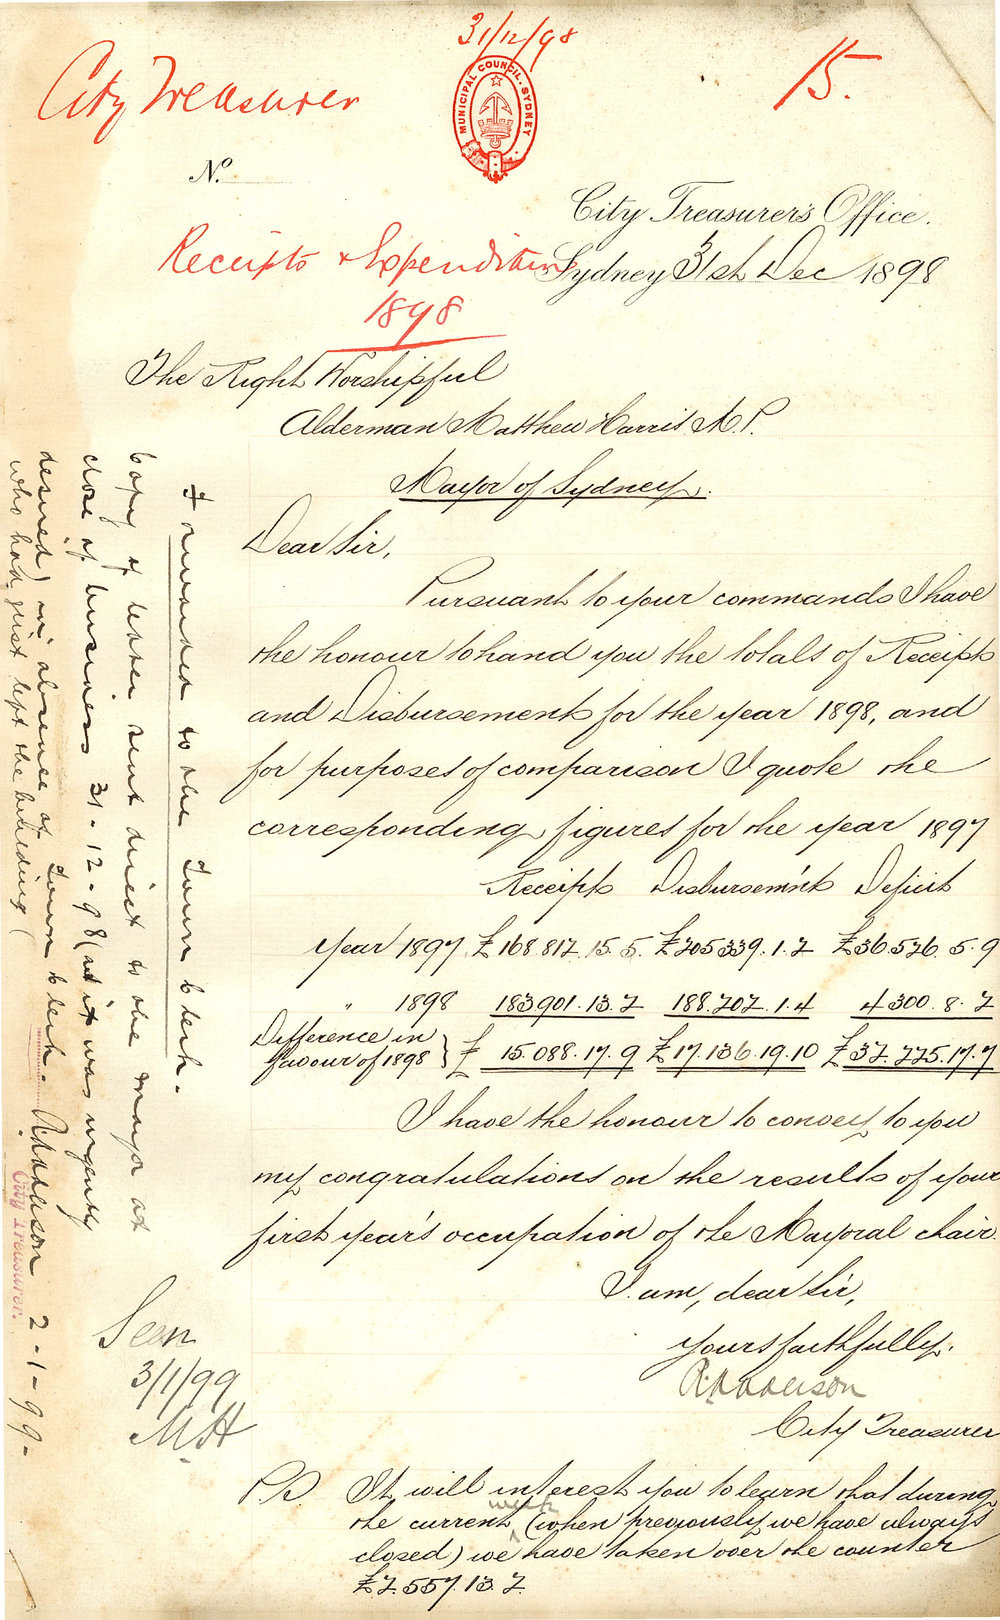 31/12/98
City Treasurer
15.
MUNICIPAL COUNCIL. SYDNEY
No.
City Treasurer's Office.
Receipts & Expenditure
Sydney 31st Dec 1898
1898
The Right Worshipful
Alderman Matthew Harris M.P.
Mayor of Sydney.
Dear Sir,
Pursuant to your commands I have
the honour to hand you the totals of Receipts
and Disbursements for the year 1898, and
for purposes of comparison I quote the
corresponding figures for the year 1897
Receipts Disbursem'nts Deficit
Year 1897 £168.812.15.5. £205339.1.2 £36.526.5.9
" 1898 183901.13.2 188.202.1.4 4300.8.2
Difference in
favour of 1898 } £ 15.088.17.9 £17.136.19.10 £32.225.17.7
I have the honour to convey to you
my congratulations on the results of your
first year's occupation of the Mayoral chair.
I am, dear Sir,
Yours faithfully.
City Treasurer
P.S. It will interest you to learn that during
the current week (when previously we have always
closed) we have taken over the counter
£2.557.13.2.
Forwarded to the Town Clerk.
Copy of letter sent direct to the mayor at
close of business 31-12-98 (as it was urgently
desired) in absence of Town Clerk.
who had just left the building (
2-1-99-
City Treasurer.
Seen
3/1/99
M.H